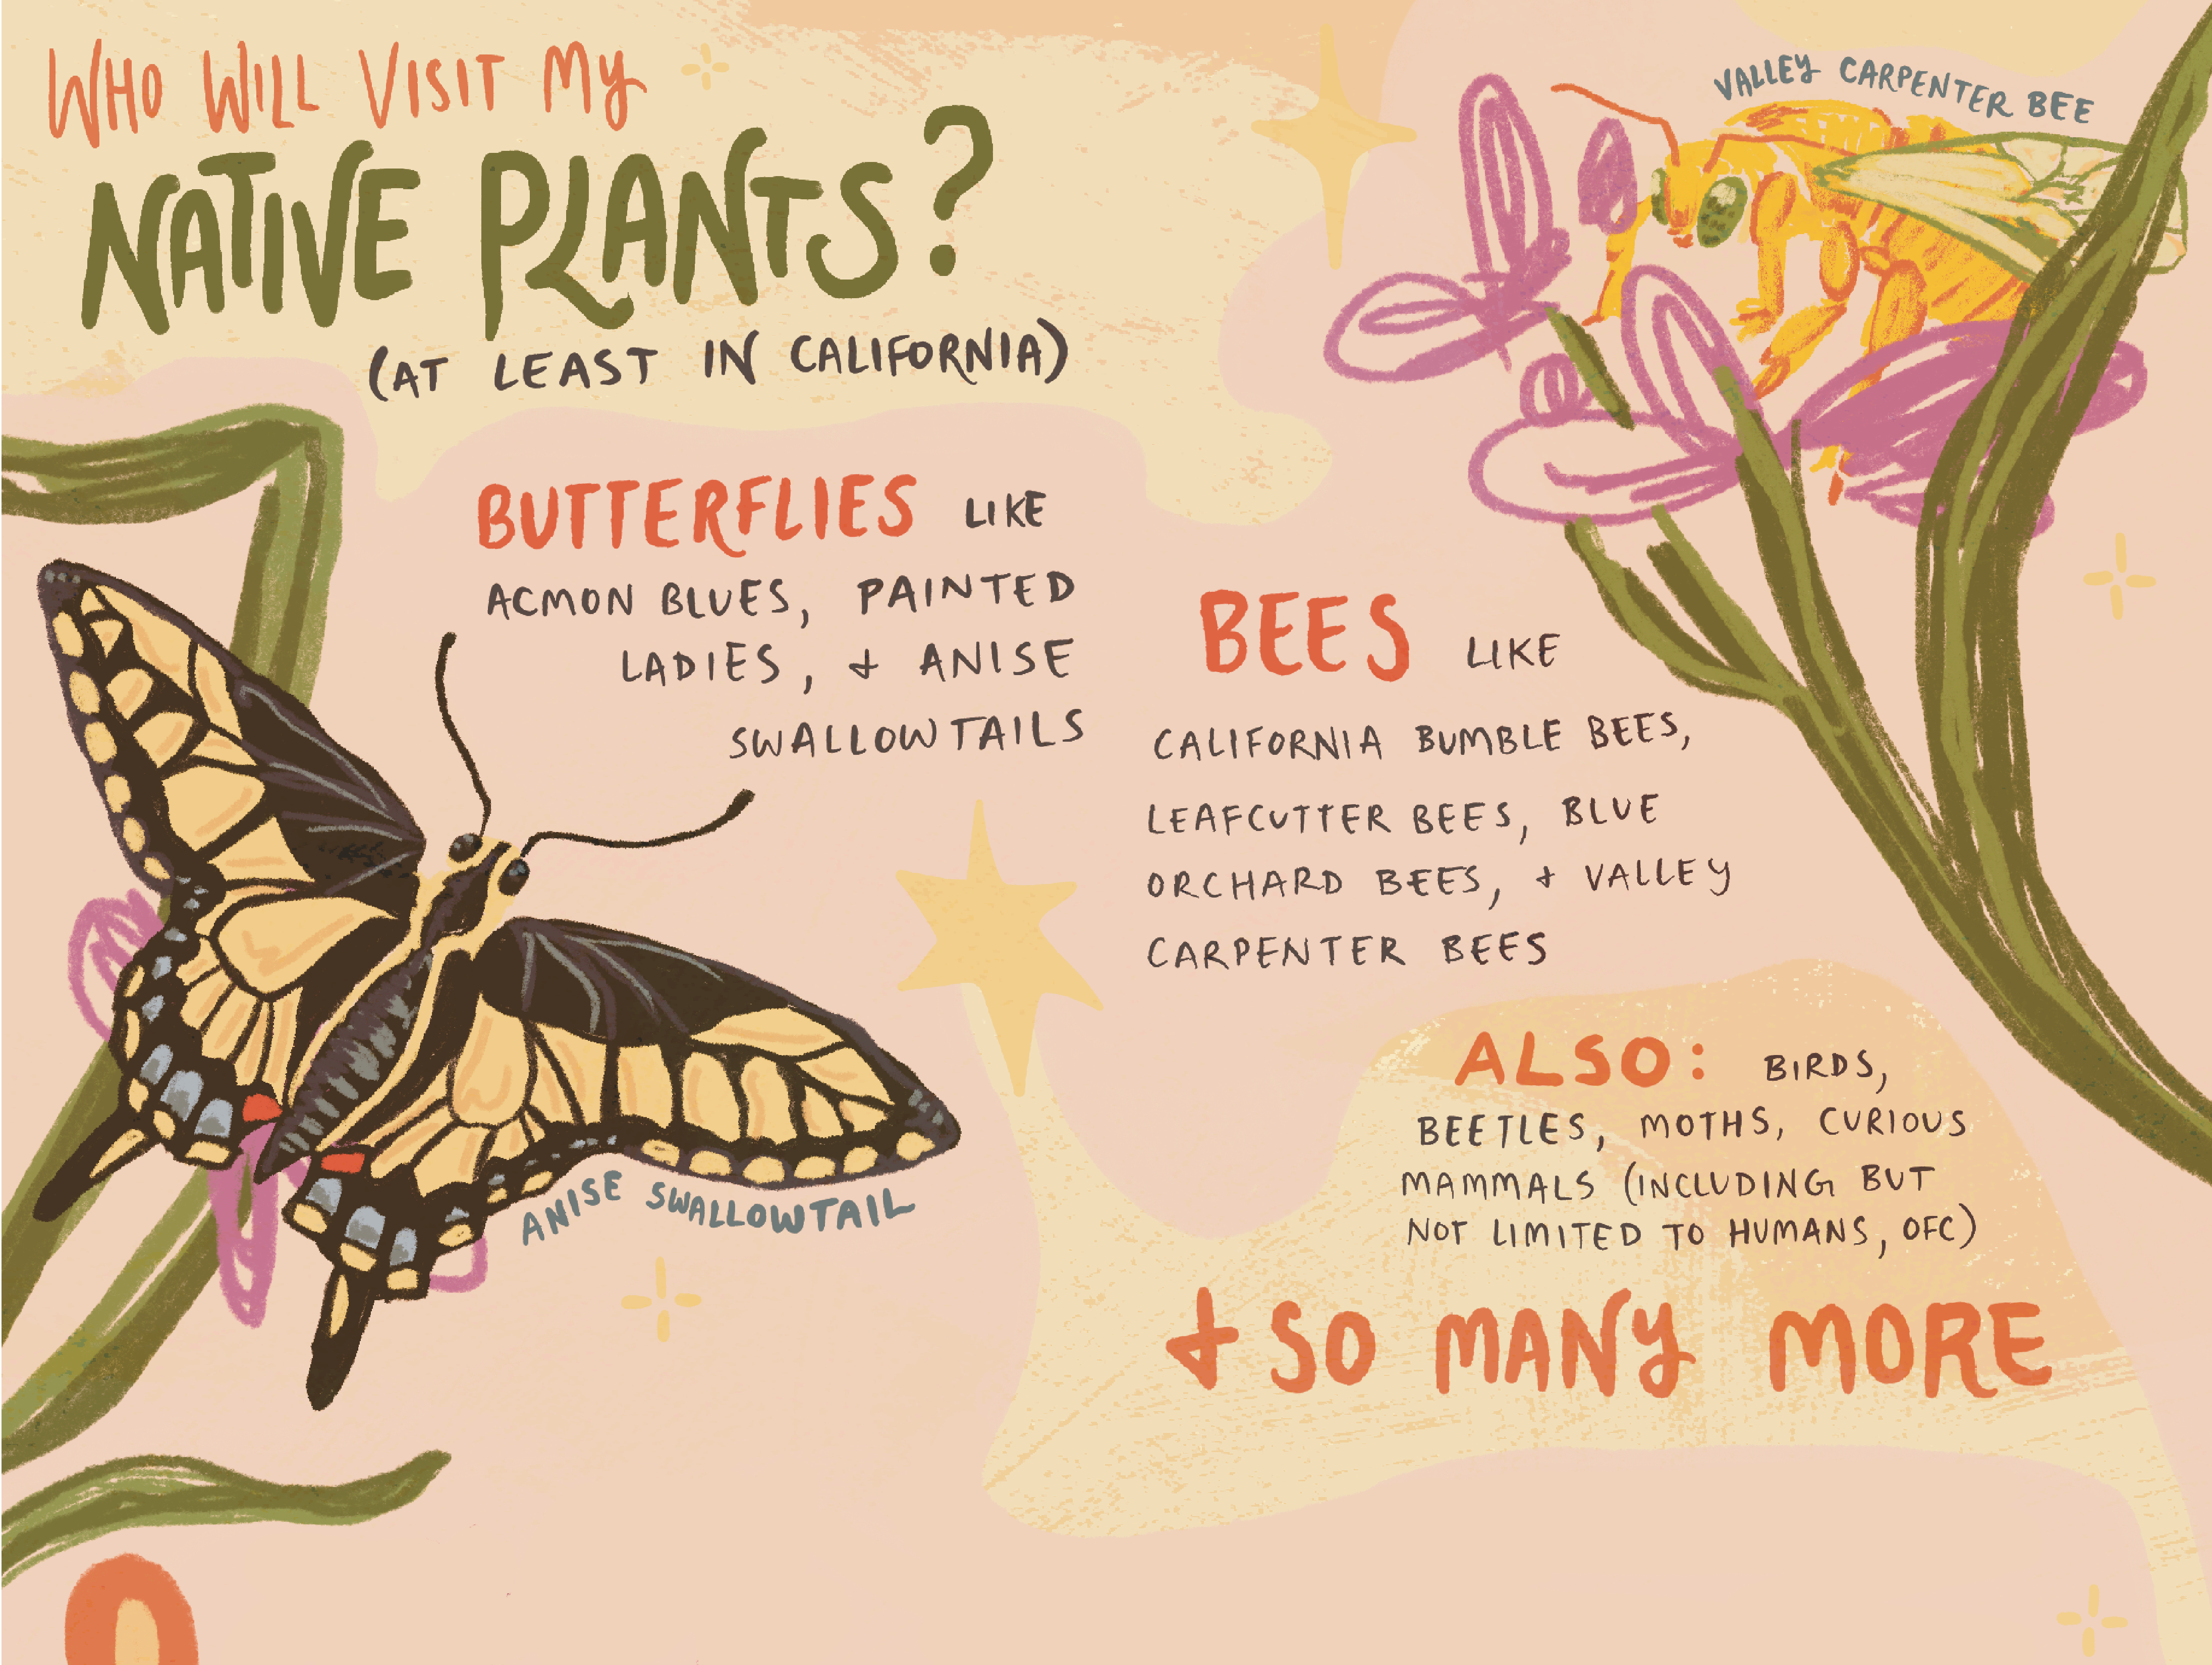 WHO WILL VISIT MY
NATIVE PLANTS?
(AT LEAST IN CALIFORNIA)
VALLEY CARPENTER BEE
BUTTERFLIES LIKE
ACMON BLUES, PAINTED
LADIES, + ANISE
SWALLOWTAILS
BEES LIKE
CALIFORNIA BUMBLE BEES,
LEAFCUTTER BEES, BLUE
ORCHARD BEES, + VALLEY
CARPENTER BEES
ANISE SWALLOWTAIL
ALSO: BIRDS,
BEETLES, MOTHS, CURIOUS
MAMMALS (INCLUDING BUT
NOT LIMITED TO HUMANS, OFC)
+ SO MANY MORE